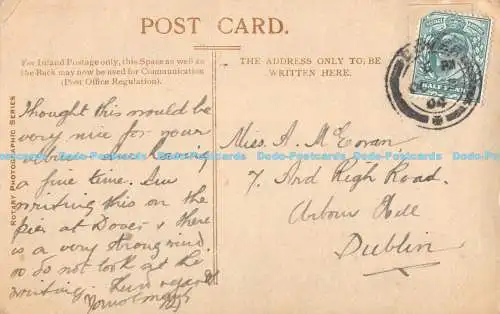 POST CARD.
For Inland Postage only, this Space as well as
the Back may now be used for Communication
(Post Office Regulation).
THE ADDRESS ONLY TO BE
WRITTEN HERE.
ROTARY PHOTOGRAPHIC SERIES
DOVER
04
HALFPENNY
I thought this would be
very nice for your
album. Am having
a fine time. Am
writing this on the
pier at Dover & there
is a very strong wind
so do not look at the
writing.
Miss. A. McEvan.
7. Ard Righ Road.
Arbour Hill
Dublin
Dodo-Postcards Dodo-Postcards Dodo-Postcards Dodo-Postcards